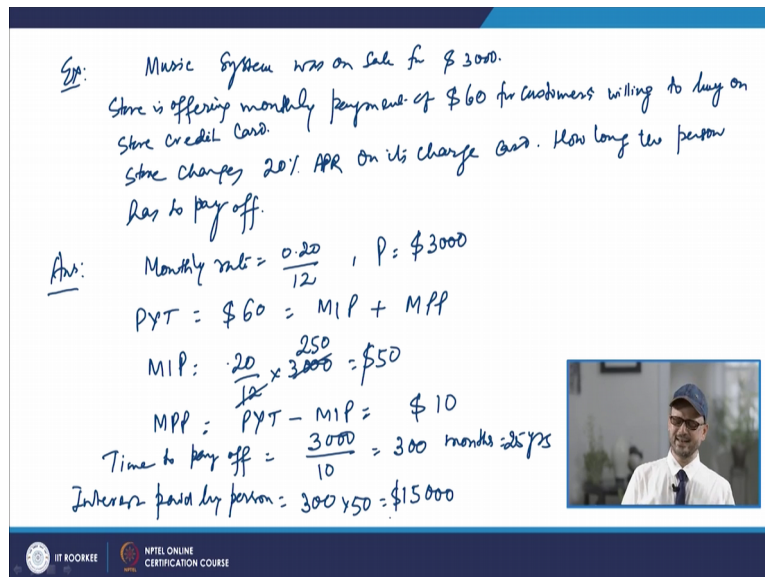 Ex: Music System was on Sale for $ 3000.
Store is offering monthly payment of $60 for customers willing to buy on
Store credit Card.
Store charges 20% APR on its charge card. How long the person
has to pay off.
Ans: Monthly rate = 0.20/12 , P = $3000
PYT = $60 = MIP + MPP
MIP: .20/12 × 3000 250 = $50
MPP = PYT - MIP = $10
Time to pay off = 3000/10 = 300 months = 25 yrs
Interest paid by person = 300 × 50 = $15000
IIT ROORKEE
NPTEL ONLINE
CERTIFICATION COURSE